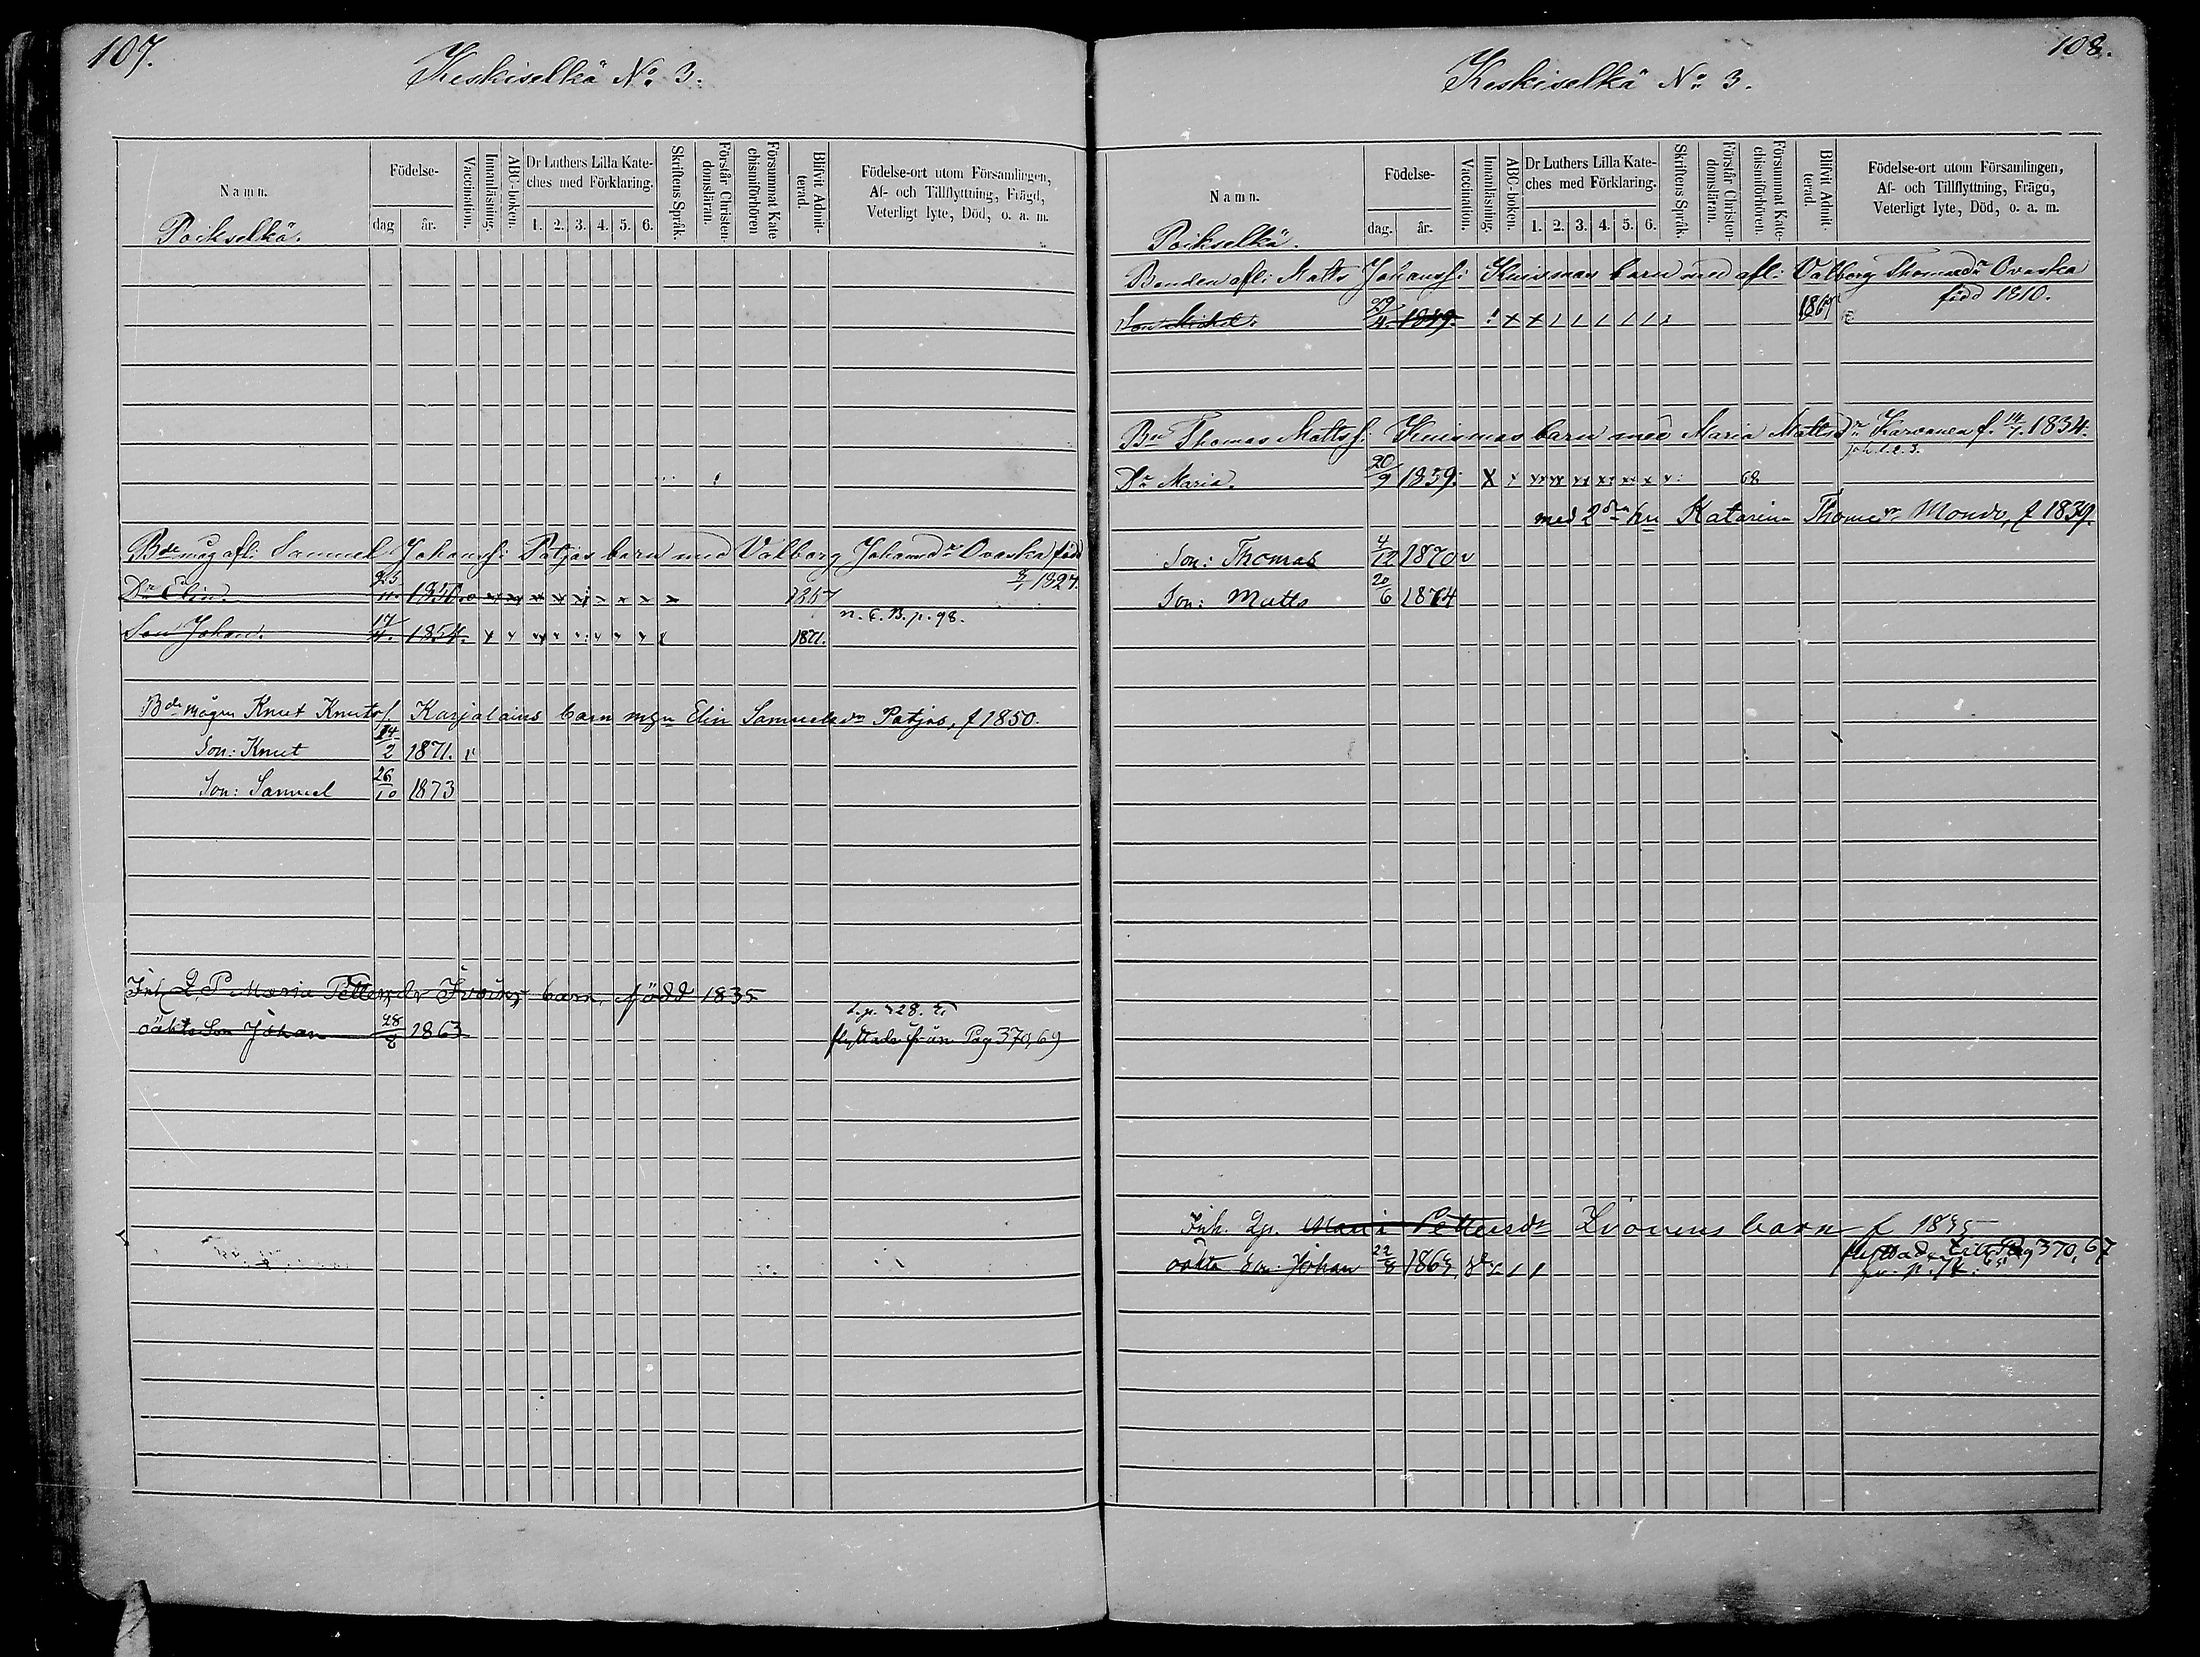 107.
Keskiselkä No 3.
Namn.
Födelse-
dag
år.
Vaccination.
Innanläsning.
ABC-boken.
Dr Luthers Lilla Kate-
ches med Förklaring.
1. 2. 3. 4. 5. 6.
Skriftens Språk.
Förstår Christen-
domsläran.
Försummat Kate
chismiförhören
Blifvit Admit-
terad.
Födelse-ort utom Församlingen,
Af- och Tillflyttning, Frägd,
Veterligt lyte, Död, o. a. m.
Poikselkä.
Bde måg afl: Samuel Johanss: Patjas barn med Valborg Johansdr Ovaska född
1827.
Dr Elin. 1850. 1867
n. C. B. p. 98.
Son Johan. 17/4. 1854. 1871.
Bde mågen Knut Knutss. Karjalains barn m Elin Samuelsdr Patjas, f 1850.
Son: Knut 14/2 1871. v
Son: Samuel 26/10 1873
Inh. Q. P. Maria Pettersdr barn, född 1835
oäkta Son Johan 28/8 1863
flyttade från Pag 370,69
108.
Keskiselkä No 3.
Namn.
Födelse-
dag.
år.
Vaccination.
Innanläsning.
ABC-boken.
Dr Luthers Lilla Kate-
ches med Förklaring.
1. 2. 3. 4. 5. 6.
Skriftens Språk.
Förstår Christen-
domsläran.
Försummat Kate-
chismiförhören.
Blifvit Admit-
terad.
Födelse-ort utom Församlingen,
Af- och Tillflyttning, Frägd,
Veterligt lyte, Död, o. a. m.
Poikselkä.
Bonden afl: Matts Johanss: Kuismas barn med afl: Valborg Thomasdr Ovaska
född 1810.
Son Michel. 29/4. 1849. 1867
Bn Thomas Mattss. Kuismas barn med Maria Mattsdr Karvanen f. 14/7. 1834.
Dr Maria. 20/9 1859. 68
med 2dra hu Katarina Thomasdr Mondo, f 1839.
Son: Thomas 4/12 1870 v
Son: Matts 20/6 1874
Inh. Qp. Maria Pettersdr barn f 1835
flyttade till Pag 370, 67
oäkta Son Johan 22/8 1863